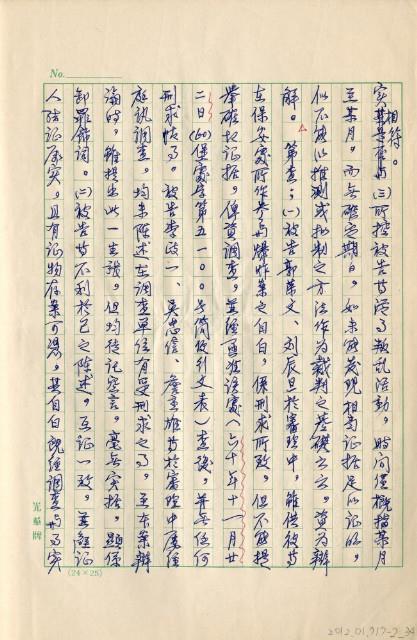 No.
實相符。
其等辯㈢所控被告等從事叛亂活動,時間僅概指某月
至某月,而無確定之期日。如未能發現相當證據足以証明,
似不能以推測或擬制之方法作為裁判之基礎云云。資為辯
解。第查:㈠被告郭榮文、劉辰旦於審理中,雖供彼等
在保安處所作參與爆炸案之自白,係刑求所致,但不能提
舉確切証據,俾資調查。並經函准該處(六十年十一月廿
二日(60)保處字第五一〇〇號簡便行文表)查復,並無任何
刑求情事。被告李政一、吳忠信、詹重雄等於審理中歷經
庭訊調查,均未陳述在調查單位有受刑求之事。至本案辯
論時,雖提出此一主張,但均徒託空言,毫無實據,顯係
卸罪飾詞。㈡被告等不利於己之陳述,互証一致,並經証
人結証屬實,且有証物存案可憑。其自白既經調查與事實
光華牌
(24×25)
2012.01.717-2_34